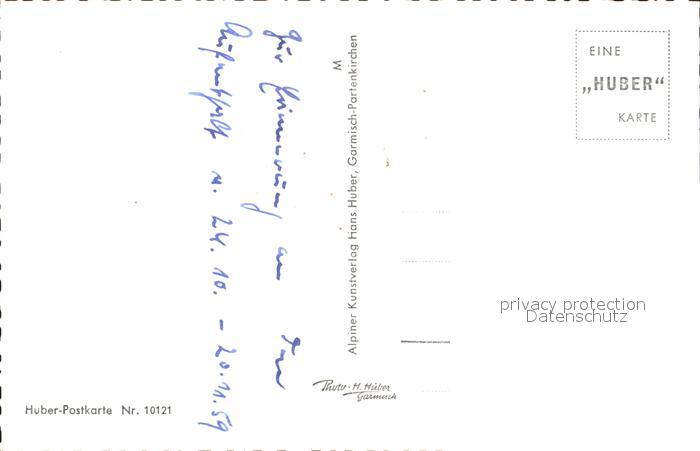 Zur Erinnerung an
Aufenthalt v. 24. 10. – 20. 11. 59
M
Alpiner Kunstverlag Hans Huber, Garmisch-Partenkirchen
EINE
„HUBER“
KARTE
privacy protection
Datenschutz
Photo-H. Huber
Garmisch
Huber-Postkarte Nr. 10121